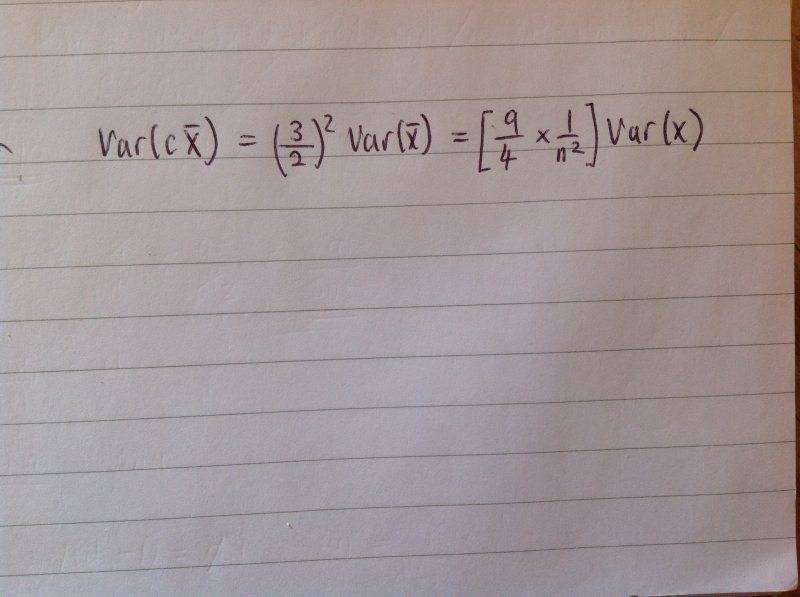 Var(c x̄) = (3/2)² Var(x̄) = [9/4 × 1/n²] Var(x)